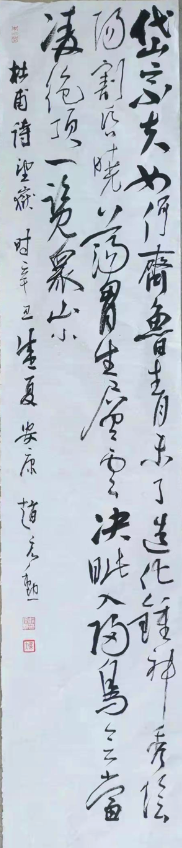 岱宗夫如何齊魯青未了造化鍾神秀陰
陽割昏曉蕩胷生層雲决眦入歸鳥會當
凌絶頂一覽衆山小
杜甫詩望嶽 時辛丑盛夏 安康 趙勳